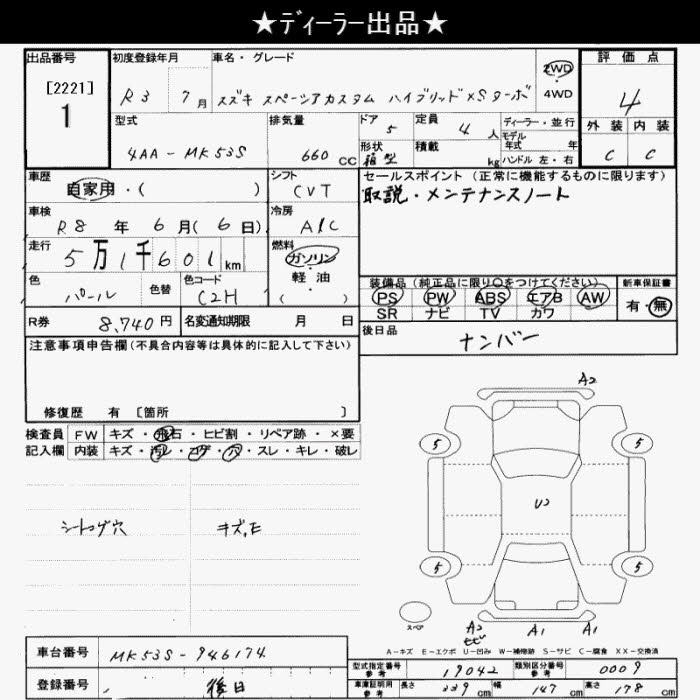 ★ディーラー出品★
出品番号
[2221]
1
初度登録年月
R3 7月
車名・グレード
スズキ スペーシアカスタム ハイブリッドXSターボ
2WD
・
4WD
評価点
4
外装 内装
C C
型式
4AA-MK53S
排気量
660 CC
ドア 5
形状 箱型
定員 4 人
積載 kg
ディーラー・並行
モデル
年式 年
ハンドル 左・右
車歴
自家用・( )
シフト
CVT
セールスポイント(正常に機能するものに限ります)
取説・メンテナンスノート
車検
R8 年 6 月(6 日)
冷房
A/C
走行
5万1千601km
燃料
ガソリン
・
軽油
( )
色
パール
色替
色コード
C2H
装備品(純正品に限り○をつけてください)
PS PW ABS エアB AW
SR ナビ TV カワ
新車保証書
有・無
R券 8,740円
名変通知期限 月 日
後日品
ナンバー
注意事項申告欄(不具合内容等は具体的に記入して下さい)
修復歴 有 [箇所 ]
検査員
記入欄
FW キズ・飛石・ヒビ割・リペア跡・×要
内装 キズ・汚レ・コゲ・穴・スレ・キレ・破レ
シートコゲ穴
キズ,E
A2
5 5
U2
5 5
スペア
A2
ヒビ
A1 A1
A-キズ E-エクボ U-凹み W-補修跡 S-サビ C-腐食 XX-交換済
車台番号 MK53S-946174
登録番号 後日
型式指定番号
参考
19042
類別区分番号
参考
0009
車庫証明用
参考
長さ 339 cm
幅 147 cm
高さ 178 cm